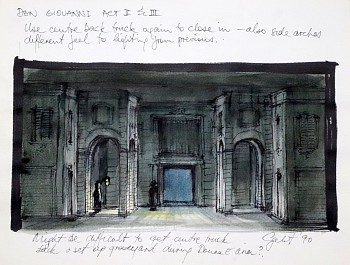 DON GIOVANNI ACT II Sc III
Use centre back truck again to close in – also side arches
different feel to lighting from previous..
Might be difficult to get centre truck
back & set up graveyard during Donna E aria?.
'90